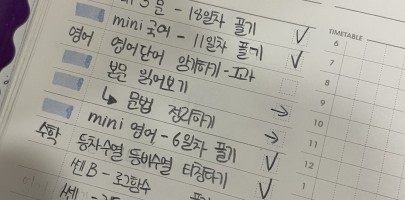 문 - 18일차 풀기
mini 국어 - 11일차 풀기
영어 영어단어 암기하기 - 고과
본문 읽어보기
↳ 문법 정리하기
mini 영어 - 6일차 풀기
수학 등차수열 등비수열 타점타기
쎈B - 로그함수
쎈
TIMETABLE
6
7
8
9
10
11
12
1